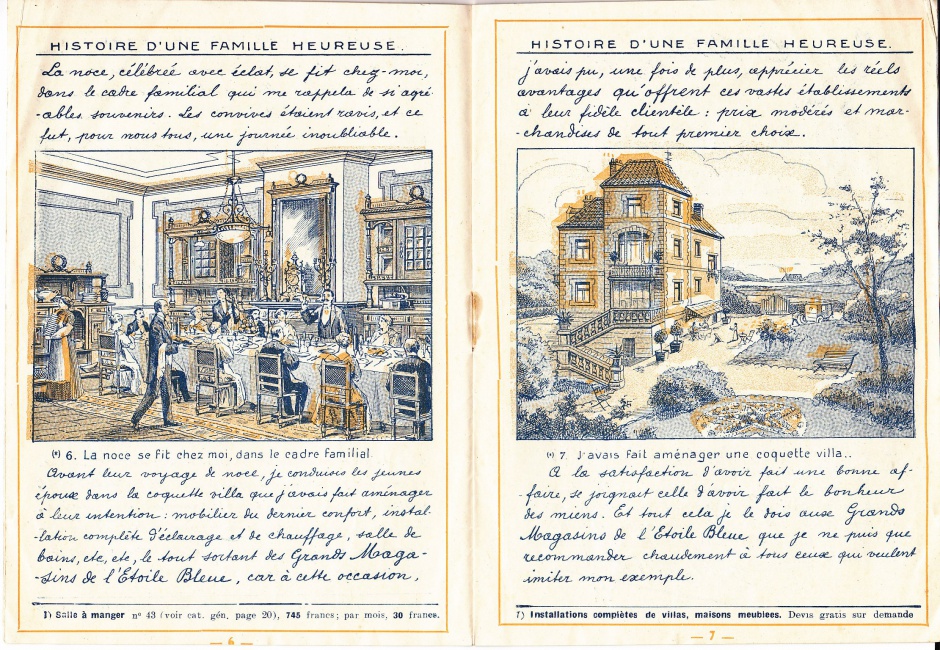 HISTOIRE D'UNE FAMILLE HEUREUSE.
La noce, célébrée avec éclat, se fit chez-moi,
dans le cadre familial qui me rappela de si agré-
-ables souvenirs. Les convives étaient ravis, et ce
fut, pour nous tous, une journée inoubliable.
(*) 6. La noce se fit chez moi, dans le cadre familial.
Avant leur voyage de noce, je conduisis les jeunes
époux dans la coquette villa que j'avais fait aménager
à leur intention : mobilier du dernier confort, instal-
-lation complète d'éclairage et de chauffage, salle de
bains, etc, etc, le tout sortant des Grands Maga-
-sins de l'Etoile Bleue, car à cette occasion,
1) Salle à manger n° 43 (voir cat. gén. page 20), 745 francs; par mois, 30 francs.
— 6 —
HISTOIRE D'UNE FAMILLE HEUREUSE.
j'avais pu, une fois de plus, apprécier les réels
avantages qu'offrent ces vastes établissements
à leur fidèle clientèle : prix modérés et mar-
-chandises de tout premier choix.
(*) 7. J'avais fait aménager une coquette villa..
A la satisfaction d'avoir fait une bonne af-
-faire, se joignait celle d'avoir fait le bonheur
des miens. Et tout cela je le dois aux Grands
Magasins de l'Etoile Bleue que je ne puis que
recommander chaudement à tous ceux qui veulent
imiter mon exemple.
1) Installations complètes de villas, maisons meublées. Devis gratis sur demande
— 7 —